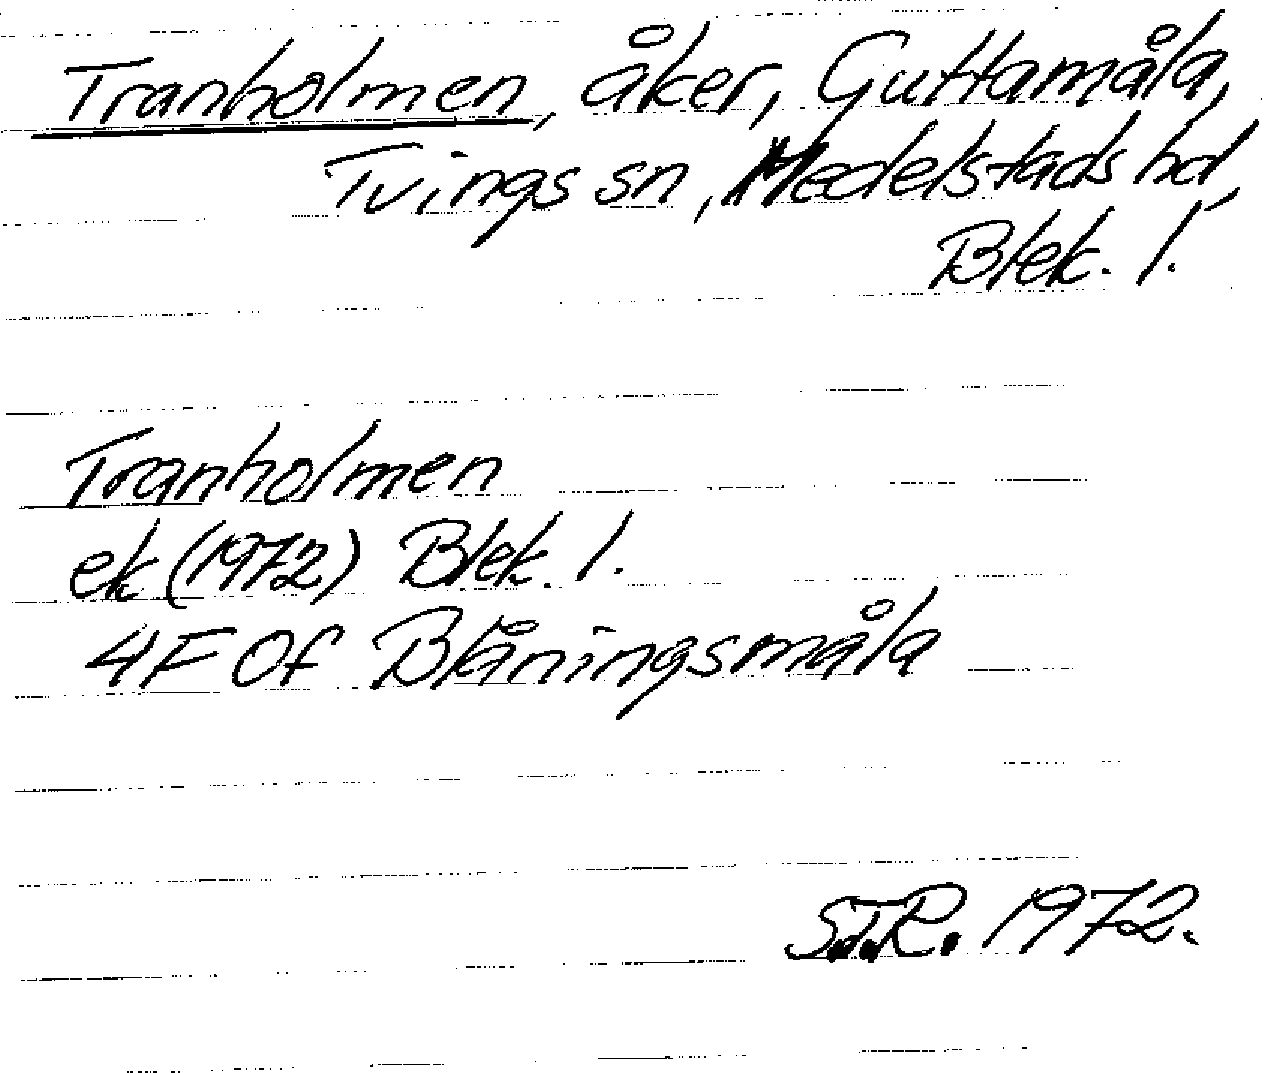 Tranholmen, åker, Guttamåla,
Tvings sn, Medelstads hd,
Blek. l.
Tranholmen
ek (1972) Blek. l.
4F 0f Blåningsmåla
S.T.R. 1972.